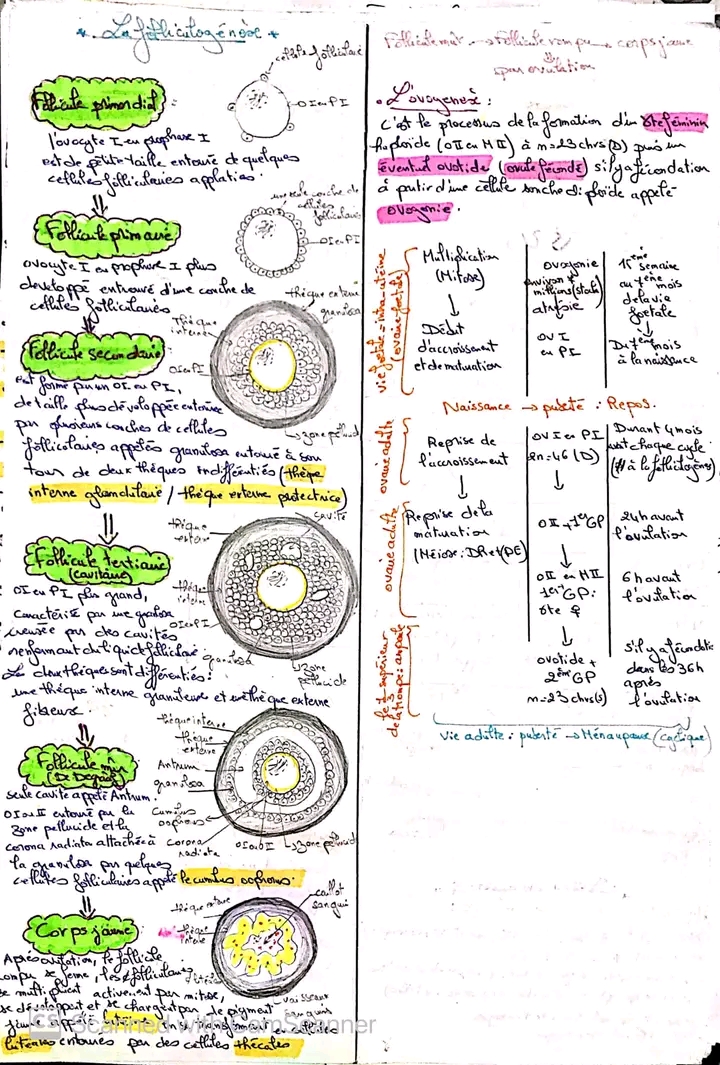 * La folliculogénèse *
cellule folliculaire
Follicule primordial :
OI en PI
l'ovocyte I en prophase I
est de petite taille entouré de quelques
cellules folliculaires applaties.
⇓
Follicule primaire
une seule couche de
cellules
folliculaires
OI en PI
ovocyte I en prophase I plus
développé entouré d'une couche de
cellules folliculaires
⇓
Follicule secondaire
thèque externe
granulosa
Thèque
interne
OI en PI
zone pellucide
est formé par un OI en PI,
de taille plus développée entourée
par plusieurs couches de cellules
folliculaires appelés granulosa entouré à son
tour de deux thèques indifférentiés (thèque
interne glandulaire / thèque externe protectrice)
⇓
Follicule tertiaire
(cavitaire)
cavité
thèque
externe
thèque
interne
OI en PI
granulosa
zone
pellucide
OI en PI plus grand,
caractérisé par une granulosa
creusée par des cavités
renfermant du liquide folliculaire
Les deux thèques sont différentiés :
une thèque interne granuleuse et une thèque externe
fibreuse.
⇓
Follicule mûr
(De Degraaf)
thèque interne
thèque
externe
Antrum
granulosa
cumulus
oophorus
corona
radiata
OI ou II
zone pellucide
seule cavité appelé Antrum.
OI ou II entouré par la
zone pellucide et la
corona radiata attachée à
la granulosa par quelques
cellules folliculaires appelé le cumulus oophorus.
⇓
Corps jaune
thèque externe
thèque
interne
caillot
sanguin
vaisseaux
sanguins
Après ovulation, le follicule
rompu se ferme, les folliculaires
se multiplient activement par mitose,
se développent et se chargent par le pigment
jaune appelé
lutéales entourées par des cellules thécales
CS Scanned with CamScanner
Follicule mûr → Follicule rompu → corps jaune
par ovulation
• L'ovogenèse :
C'est le processus de la formation d'un gte féminin
haploïde (OII en MII) à n=23 chrs (D) puis un
éventuel ovotide (ovule fécondé) s'il y a fécondation
à partir d'une cellule souche diploïde appelé
ovogonie.
vie foetale = intra-utérine
Multiplication
(Mitose)
↓
Début
d'accroissement
et de maturation
ovogonie
environ 7
millions (stock)
atrésie
OV I
en PI
15ème semaine
au 7ème mois
de la vie
foetale
↓
Du 7ème mois
à la naissance
Naissance → puberté : Repos.
ovaire adulte
Reprise de
l'accroissement
↓
OV I en PI
2n=46 (D)
↓
Durant 4 mois
avant chaque cycle
(# à la folliculogénèse)
ovaire adulte
Reprise de la
maturation
(Méiose : DR et DE)
OII + 1er GP
↓
OII en MII
1er GP :
gte ♀
↓
24h avant
l'ovulation
6h avant
l'ovulation
le 1/3 supérieur
de la trompe : ampoule
ovotide +
2ème GP
n=23 chrs (s)
s'il y a fécondation
dans les 36h
après
l'ovulation
vie adulte : puberté → Ménaupause (cyclique)